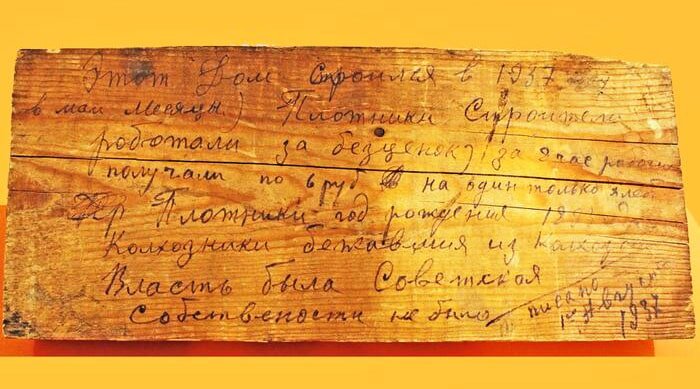 Этот Дом строился в 1937 году
в маи Месяцы) Плотники Строители
роботали за безценок) за 8 час работы
получали по 6 руб на один только хлеб
Плотники год рождения
Колхозники бежавшия из колхоза
Власть была Советская
Собствености не было
писано
1го Августа
1937